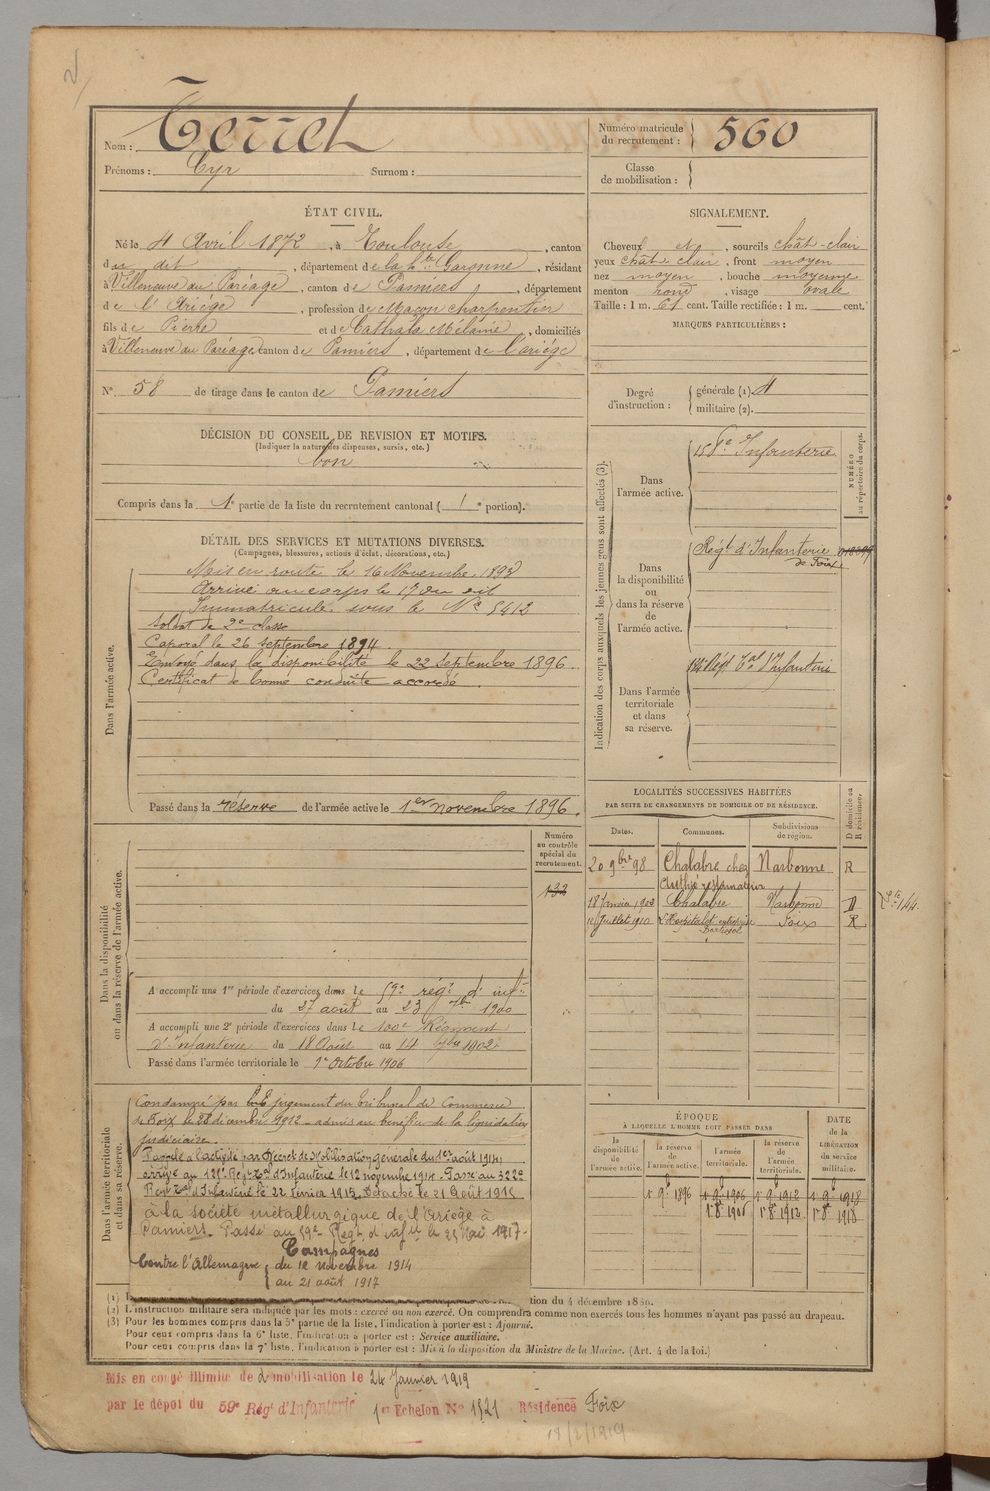 Nom : Terret
Prénoms : Cyr Surnom :
Numéro matricule du recrutement : 560
Classe de mobilisation :
ÉTAT CIVIL.
Né le 4 Avril 1872, à Toulouse, canton
du dit, département de la hte Garonne, résidant
à Villeneuve au Paréage, canton de Pamiers, département
de l'Ariège, profession de Maçon charpentier
fils de Pierre et de Cathala Mélanie, domiciliés
à Villeneuve au Paréage, canton de Pamiers, département de l'ariége
N° 58 de tirage dans le canton de Pamiers
SIGNALEMENT.
Cheveux et, sourcils chât-clair
yeux chât clair, front moyen
nez moyen, bouche moyenne
menton rond, visage ovale
Taille : 1 m. 61 cent. Taille rectifiée : 1 m. cent.
MARQUES PARTICULIÈRES :
Degré d'instruction :
générale (1)
militaire (2).
DÉCISION DU CONSEIL DE REVISION ET MOTIFS.
(Indiquer la nature des dispenses, sursis, etc.)
bon
Compris dans la 1e partie de la liste du recrutement cantonal ( 1e portion).
DÉTAIL DES SERVICES ET MUTATIONS DIVERSES.
(Campagnes, blessures, actions d'éclat, décorations, etc.)
Dans l'armée active.
Mis en route le 16 Novembre 1893
Arrivé au corps le 17 du dit
Immatriculé sous le N° 5412
Soldat de 2e classe
Caporal le 26 septembre 1894.
Envoyé dans la disponibilité le 22 septembre 1896.
Certificat de bonne conduite accordé.
Passé dans la réserve de l'armée active le 1er novembre 1896.
Indication des corps auxquels les jeunes gens sont affectés (3).
NUMÉRO au répertoire du corps.
Dans l'armée active.
158e Infanterie
Dans la disponibilité ou dans la réserve de l'armée active.
Régt d'Infanterie
de Foix
Dans l'armée territoriale et dans sa réserve.
Régt Tal d'Infanterie
LOCALITÉS SUCCESSIVES HABITÉES
PAR SUITE DE CHANGEMENTS DE DOMICILE OU DE RÉSIDENCE.
Dates. Communes. Subdivisions de région. D domicile ou R résidence.
20 9bre 98 Chalabre chez Narbonne R
18 Janvier 1903 Chalabre Narbonne D
11 Juillet 1910 L'Hospitalet Foix R
Numéro au contrôle spécial du recrutement.
132
Dans la disponibilité ou dans la réserve de l'armée active.
A accompli une 1re période d'exercices dans le 59e régt d'inft
du 27 août au 23 7bre 1900
A accompli une 2e période d'exercices dans le 100e Régiment
d'Infanterie du 18 Août au 14 7bre 1902.
Passé dans l'armée territoriale le 1er Octobre 1906
Dans l'armée territoriale et dans sa réserve.
Condamné par jugement du tribunal de Commerce
de Foix le 28 décembre 1912 - admis au bénéfice de la liquidation
judiciaire.
Rappelé à l'activité par Décret de Mobilisation générale du 1er août 1914
arrivé au Regt Tal d'Infanterie le 12 novembre 1914. Passé au 322e
Regt Tal d'Infanterie le 22 février 1915. Détaché le 21 Août 1915
à la société métallurgique de l'Ariège à
Pamiers. Passé au 59e Régt d'Infie le 25 Mai 1917.
Campagnes
Contre l'Allemagne { du 12 Novembre 1914
au 21 août 1917
ÉPOQUE
À LAQUELLE L'HOMME DOIT PASSER DANS
la disponibilité de l'armée active. la réserve de l'armée active. l'armée territoriale. la réserve de l'armée territoriale.
DATE de la LIBÉRATION du service militaire.
1er 9e 1896 1er 9e 1906 1er 9e 1912 1er 9e 1918
1er 8e 1906 1er 8e 1912 1er 8e 1918
tion du 4 décembre 1889.
(2) L'instruction militaire sera indiquée par les mots : exercé ou non exercé. On comprendra comme non exercés tous les hommes n'ayant pas passé au drapeau.
(3) Pour les hommes compris dans la 5e partie de la liste, l'indication à porter est : Ajourné.
Pour ceux compris dans la 6e liste, l'indication à porter est : Service auxiliaire.
Pour ceux compris dans la 7e liste, l'indication à porter est : Mis à la disposition du Ministre de la Marine. (Art. 4 de la loi.)
Mis en congé illimité de démobilisation le 24 Janvier 1919
par le dépot du 59e Régt d'Infanterie 1er Echelon N° 1521 Résidence Foix
18/2/1919